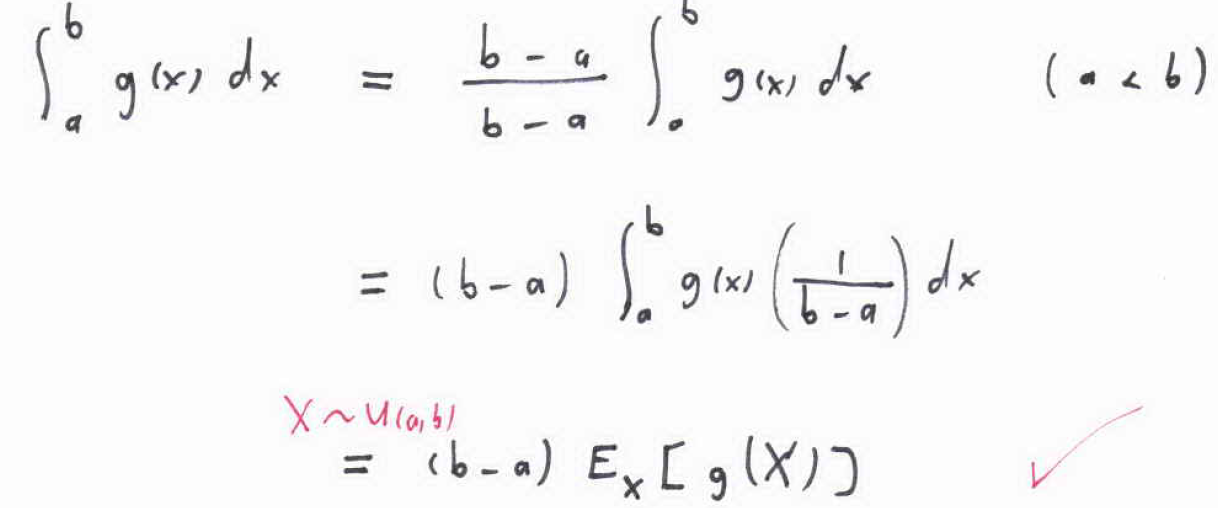 ∫_a^b g(x) dx = \frac{b - a}{b - a} ∫_a^b g(x) dx (a < b)
= (b - a) ∫_a^b g(x) (\frac{1}{b - a}) dx
X ~ U(a,b)
= (b - a) E_X [ g(X) ]